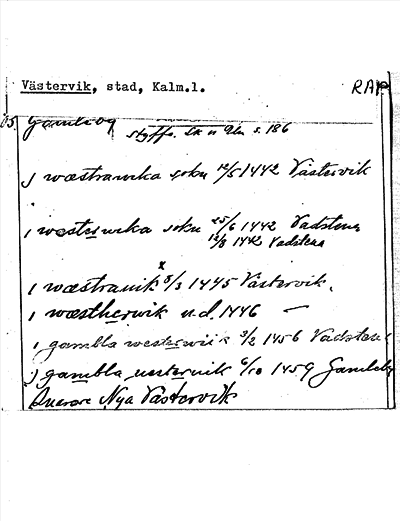 Västervik, stad, Kalm.l. RAP
Gamleby
Styffe. s. 186
J wæstrauika sokn 12/5 1442 Västervik
i westerwika sokn 25/6 1442 Vadstena
12/8 1442 Vadstena
i wæstrauik 5/3 1445 Västervik.
i wæstherwik u.d. 1446 —
i gambla westerwiik 3/2 1456 Vadstena
j gambla westerwik 6/10 1459 Gamleby
Nya Västervik